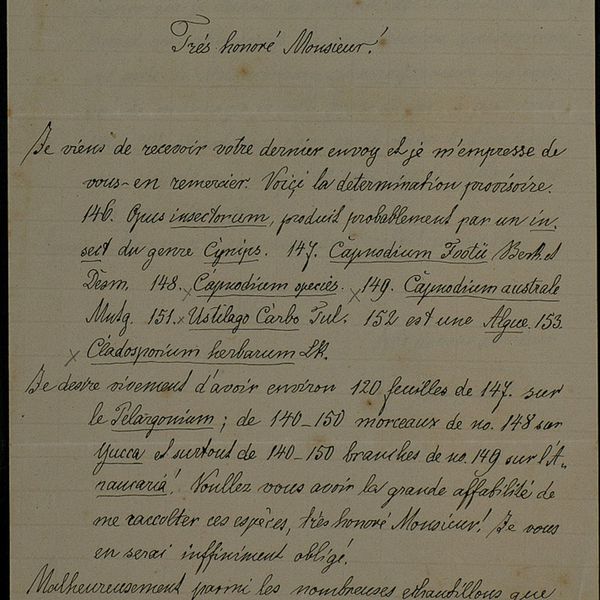 Trés honoré Monsieur!
Je viens de recevoir votre dernier envoy et je m'empresse de
vous-en remercier. Voiçi la determination provisoire.
146. Opus insectorum, produit probablement par un in-
sect du genre Cÿnips. 147. Capnodium Footii Berk et
Desm. 148. × Capnodium species. × 149. Capnodium australe
Mntg. 151. × Ustilago Carbo Tul. 152 est une Algue. 153.
× Cladosporium herbarum Lk.
Je desire vivement d'avoir environ 120 feuilles de 147. sur
le Pelargonium; de 140-150 morceaux de no. 148 sur
Yucca et surtout de 140-150 branches de no. 149 sur l'A-
raucaria! Voullez vous avoir la grande affabilité de
me raccolter ces espèces, très honoré Monsieur! Je vous
en serai inffiniment obligé.
Malheureusement parmi les nombreuses echantillons que